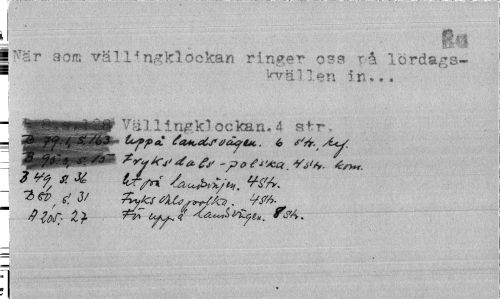 Ra
När som vällingklockan ringer oss på lördags-
kvällen in...
Vällingklockan. 4 str.
B 79:1, s. 163 Uppå landsvägen. 6 str. ref.
Fryksdals-polska. 4 str. kom.
B 49, s. 36 Ut på landsvägen. 4 str.
B 60, s. 31 Fryksdalspolska. 4 str.
A 205. 27 För uppå landsvägen. 8 str.